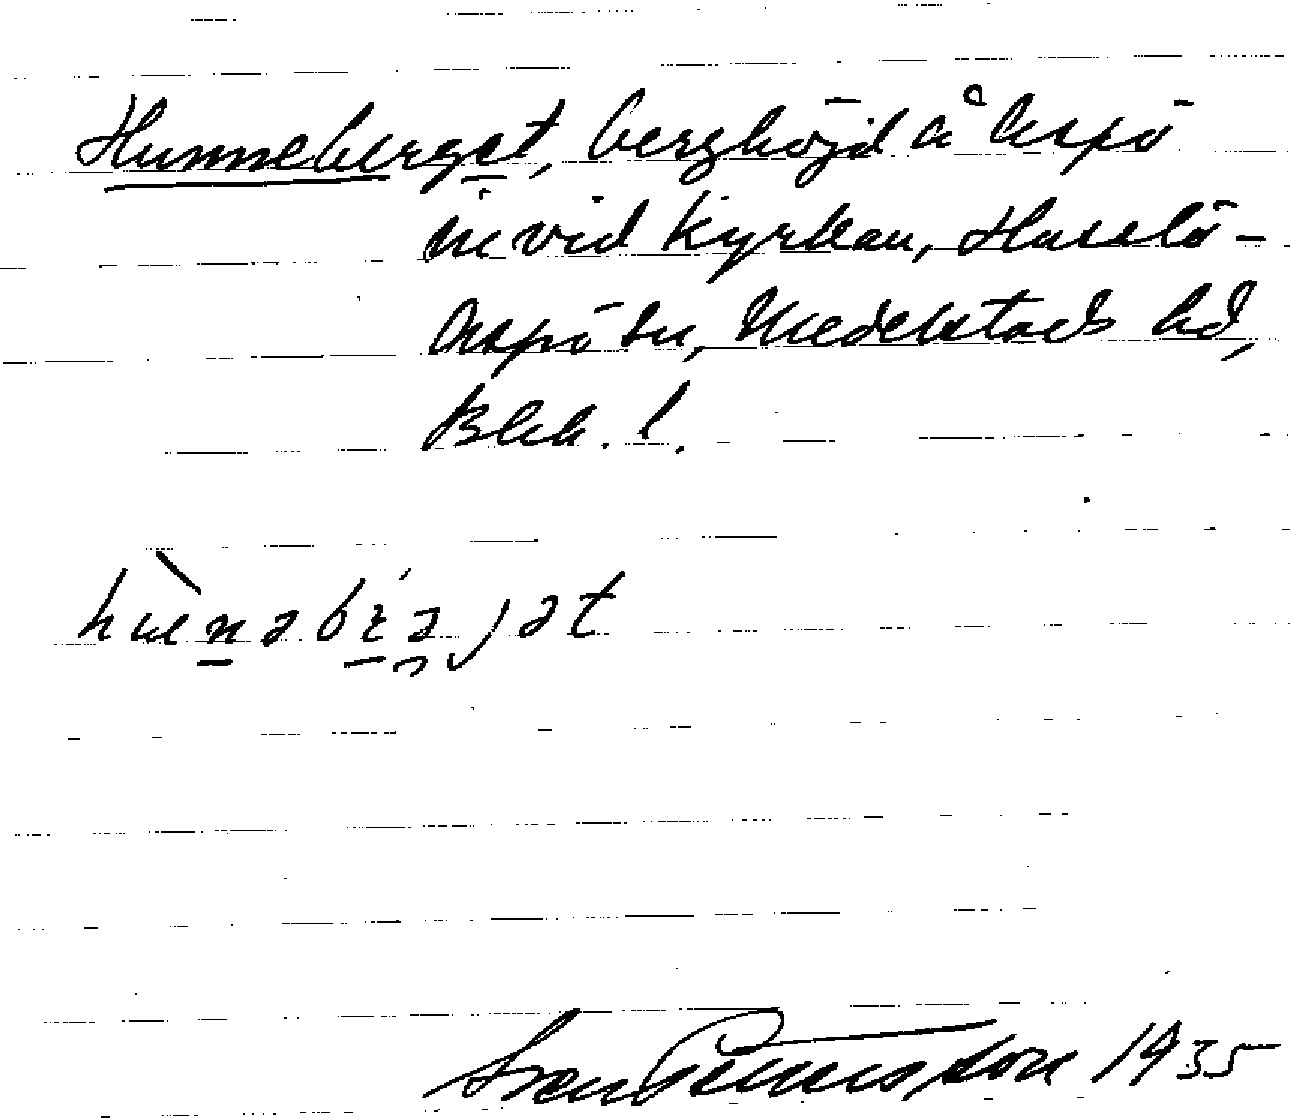 Hunneberget, berghöjd å Aspö
invid Kyrkan, Hasslö-
Aspö sn, Medelstads hd,
Blek. l.
Sven Benson 1935